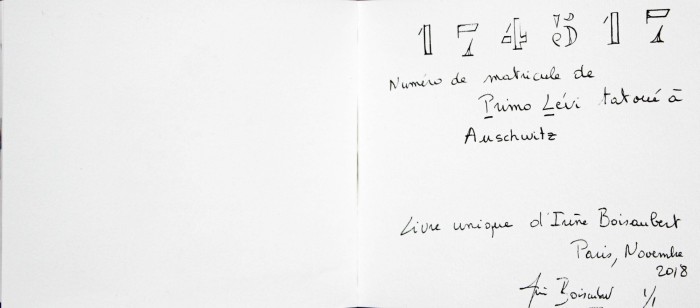 174517
Numéro de matricule de
Primo Lévi tatoué à
Auschwitz
Livre unique d'Irène Boisaubert
Paris, Novembre
2018
Boisaubert 1/1